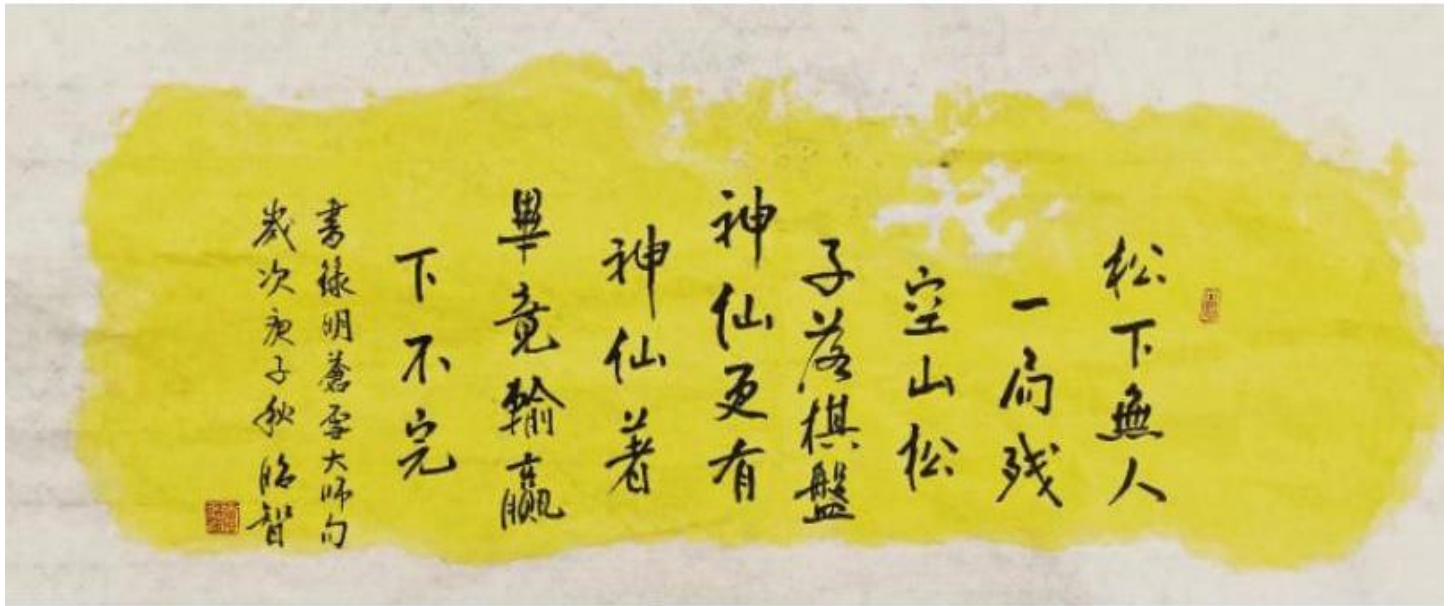 松下無人
一局残
空山松
子落棋盤
神仙更有
神仙著
畢竟輸贏
下不完
書錄明蒼雪大師句
歲次庚子秋